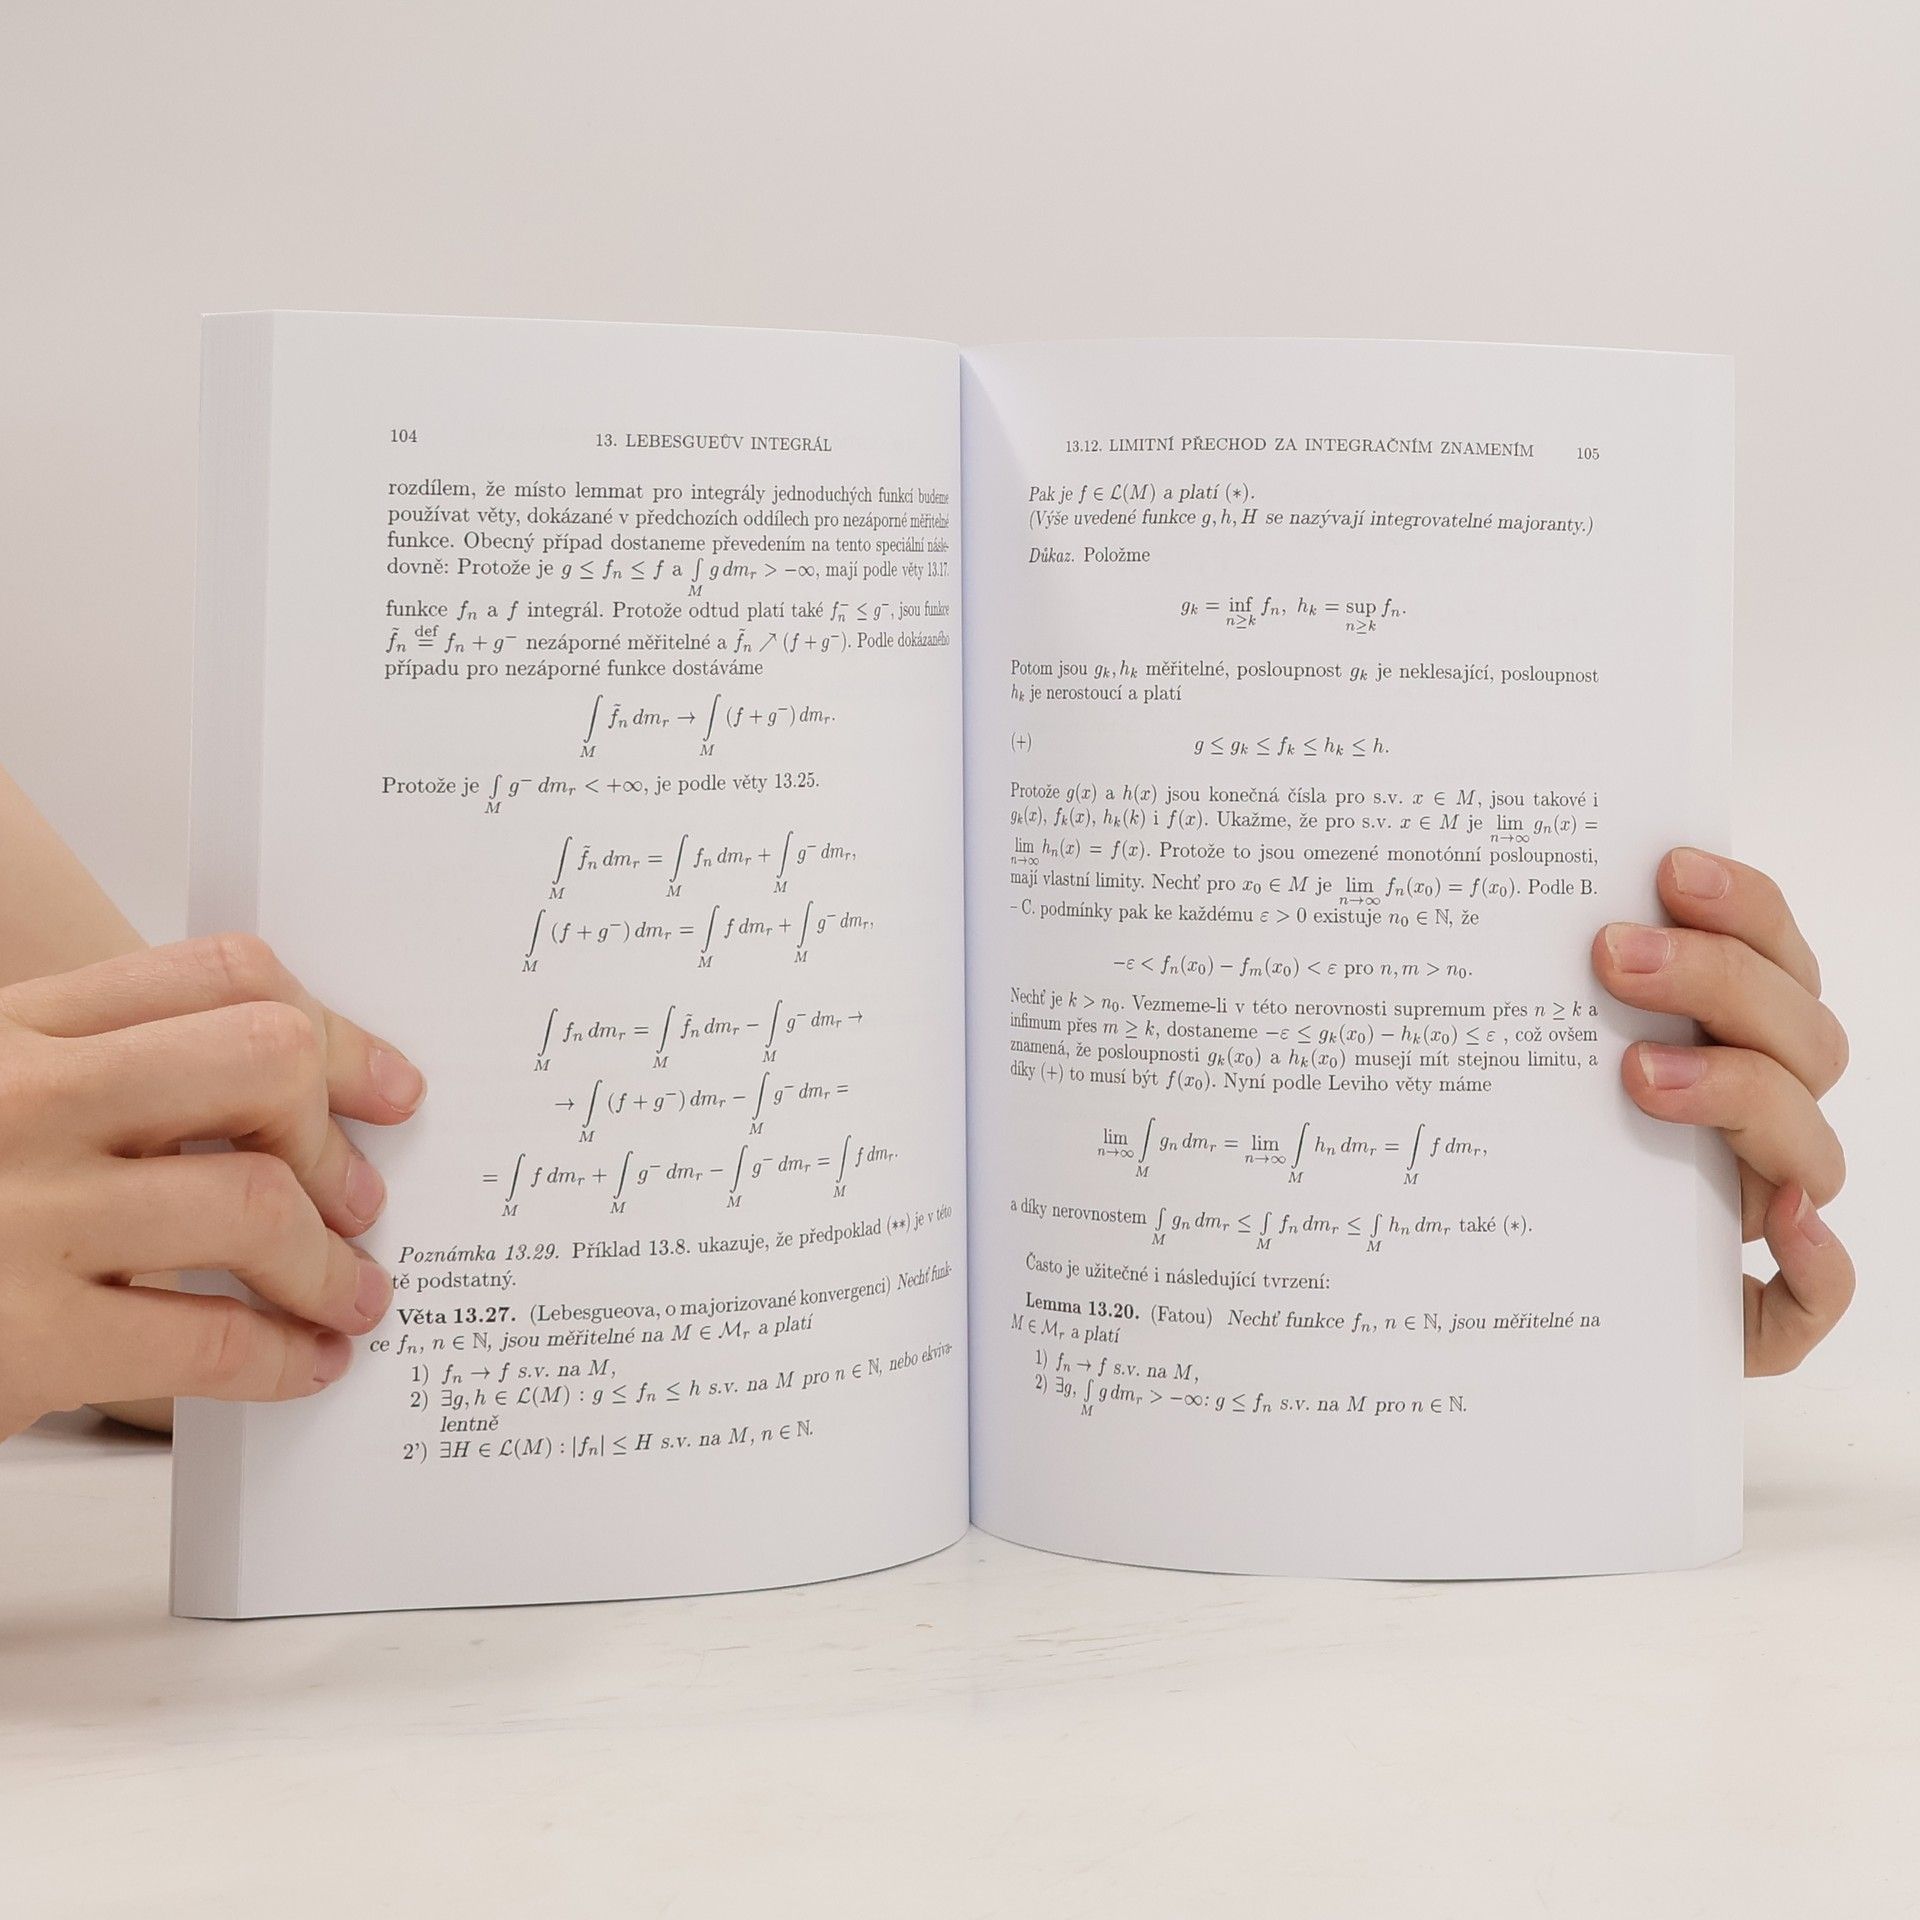 104
13. LEBESGUEŮV INTEGRÁL
rozdílem, že místo lemmat pro integrály jednoduchých funkcí budeme
používat věty, dokázané v předchozích oddílech pro nezáporné měřitelné
funkce. Obecný případ dostaneme převedením na tento speciální násle-
dovně: Protože je g ≤ fₙ ≤ f a ∫_M g dmᵣ > −∞, mají podle věty 13.17.
funkce fₙ a f integrál. Protože odtud platí také fₙ⁻ ≤ g⁻, jsou funkce
f̃ₙ ≝ fₙ + g⁻ nezáporné měřitelné a f̃ₙ ↗ (f + g⁻). Podle dokázaného
případu pro nezáporné funkce dostáváme
∫_M f̃ₙ dmᵣ → ∫_M (f + g⁻) dmᵣ.
Protože je ∫_M g⁻ dmᵣ < +∞, je podle věty 13.25.
∫_M f̃ₙ dmᵣ = ∫_M fₙ dmᵣ + ∫_M g⁻ dmᵣ,
∫_M (f + g⁻) dmᵣ = ∫_M f dmᵣ + ∫_M g⁻ dmᵣ,
∫_M fₙ dmᵣ = ∫_M f̃ₙ dmᵣ − ∫_M g⁻ dmᵣ →
→ ∫_M (f + g⁻) dmᵣ − ∫_M g⁻ dmᵣ =
= ∫_M f dmᵣ + ∫_M g⁻ dmᵣ − ∫_M g⁻ dmᵣ = ∫_M f dmᵣ.
Poznámka 13.29. Příklad 13.8. ukazuje, že předpoklad (**) je v této
tě podstatný.
Věta 13.27. (Lebesgueova, o majorizované konvergenci) Nechť funk-
ce fₙ, n ∈ ℕ, jsou měřitelné na M ∈ ℳᵣ a platí
1) fₙ → f s.v. na M,
2) ∃g, h ∈ ℒ(M) : g ≤ fₙ ≤ h s.v. na M pro n ∈ ℕ, nebo ekviva-
lentně
2') ∃H ∈ ℒ(M) : |fₙ| ≤ H s.v. na M, n ∈ ℕ.
13.12. LIMITNÍ PŘECHOD ZA INTEGRAČNÍM ZNAMENÍM
105
Pak je f ∈ ℒ(M) a platí (∗).
(Výše uvedené funkce g, h, H se nazývají integrovatelné majoranty.)
Důkaz. Položme
gₖ = inf_{n≥k} fₙ, hₖ = sup_{n≥k} fₙ.
Potom jsou gₖ, hₖ měřitelné, posloupnost gₖ je neklesající, posloupnost
hₖ je nerostoucí a platí
(+) g ≤ gₖ ≤ fₖ ≤ hₖ ≤ h.
Protože g(x) a h(x) jsou konečná čísla pro s.v. x ∈ M, jsou takové i
gₖ(x), fₖ(x), hₖ(k) i f(x). Ukažme, že pro s.v. x ∈ M je lim_{n→∞} gₙ(x) =
lim_{n→∞} hₙ(x) = f(x). Protože to jsou omezené monotónní posloupnosti,
mají vlastní limity. Nechť pro x₀ ∈ M je lim_{n→∞} fₙ(x₀) = f(x₀). Podle B.
– C. podmínky pak ke každému ε > 0 existuje n₀ ∈ ℕ, že
−ε < fₙ(x₀) − fₘ(x₀) < ε pro n, m > n₀.
Nechť je k > n₀. Vezmeme-li v této nerovnosti supremum přes n ≥ k a
infimum přes m ≥ k, dostaneme −ε ≤ gₖ(x₀) − hₖ(x₀) ≤ ε , což ovšem
znamená, že posloupnosti gₖ(x₀) a hₖ(x₀) musejí mít stejnou limitu, a
díky (+) to musí být f(x₀). Nyní podle Leviho věty máme
lim_{n→∞} ∫_M gₙ dmᵣ = lim_{n→∞} ∫_M hₙ dmᵣ = ∫_M f dmᵣ,
a díky nerovnostem ∫_M gₙ dmᵣ ≤ ∫_M fₙ dmᵣ ≤ ∫_M hₙ dmᵣ také (∗).
Často je užitečné i následující tvrzení:
Lemma 13.20. (Fatou) Nechť funkce fₙ, n ∈ ℕ, jsou měřitelné na
M ∈ ℳᵣ a platí
1) fₙ → f s.v. na M,
2) ∃g, ∫_M g dmᵣ > −∞: g ≤ fₙ s.v. na M pro n ∈ ℕ.